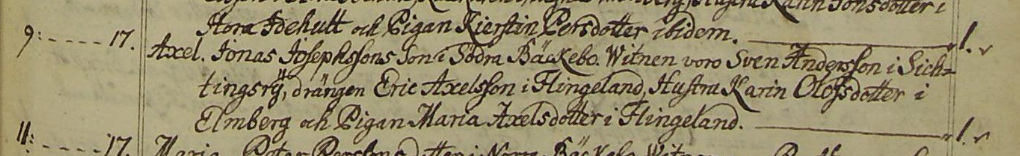 Hustru Karin Jonsdotter i
Stora Idehult och Pigan Kierstin Persdotter ibidem. 1.
9: 17. Axel. Jonas Josephssons Son i Södra Bäckebo. Witnen voro Sven Andersson i Sich=
tingsrÿ, drängen Eric Axelsson i Flingeland, Hustru Karin Olofsdotter i
Elmberg och Pigan Maria Axelsdotter i Flingeland. 1.
11: 17. Maria Peter i Norra Bäckebo